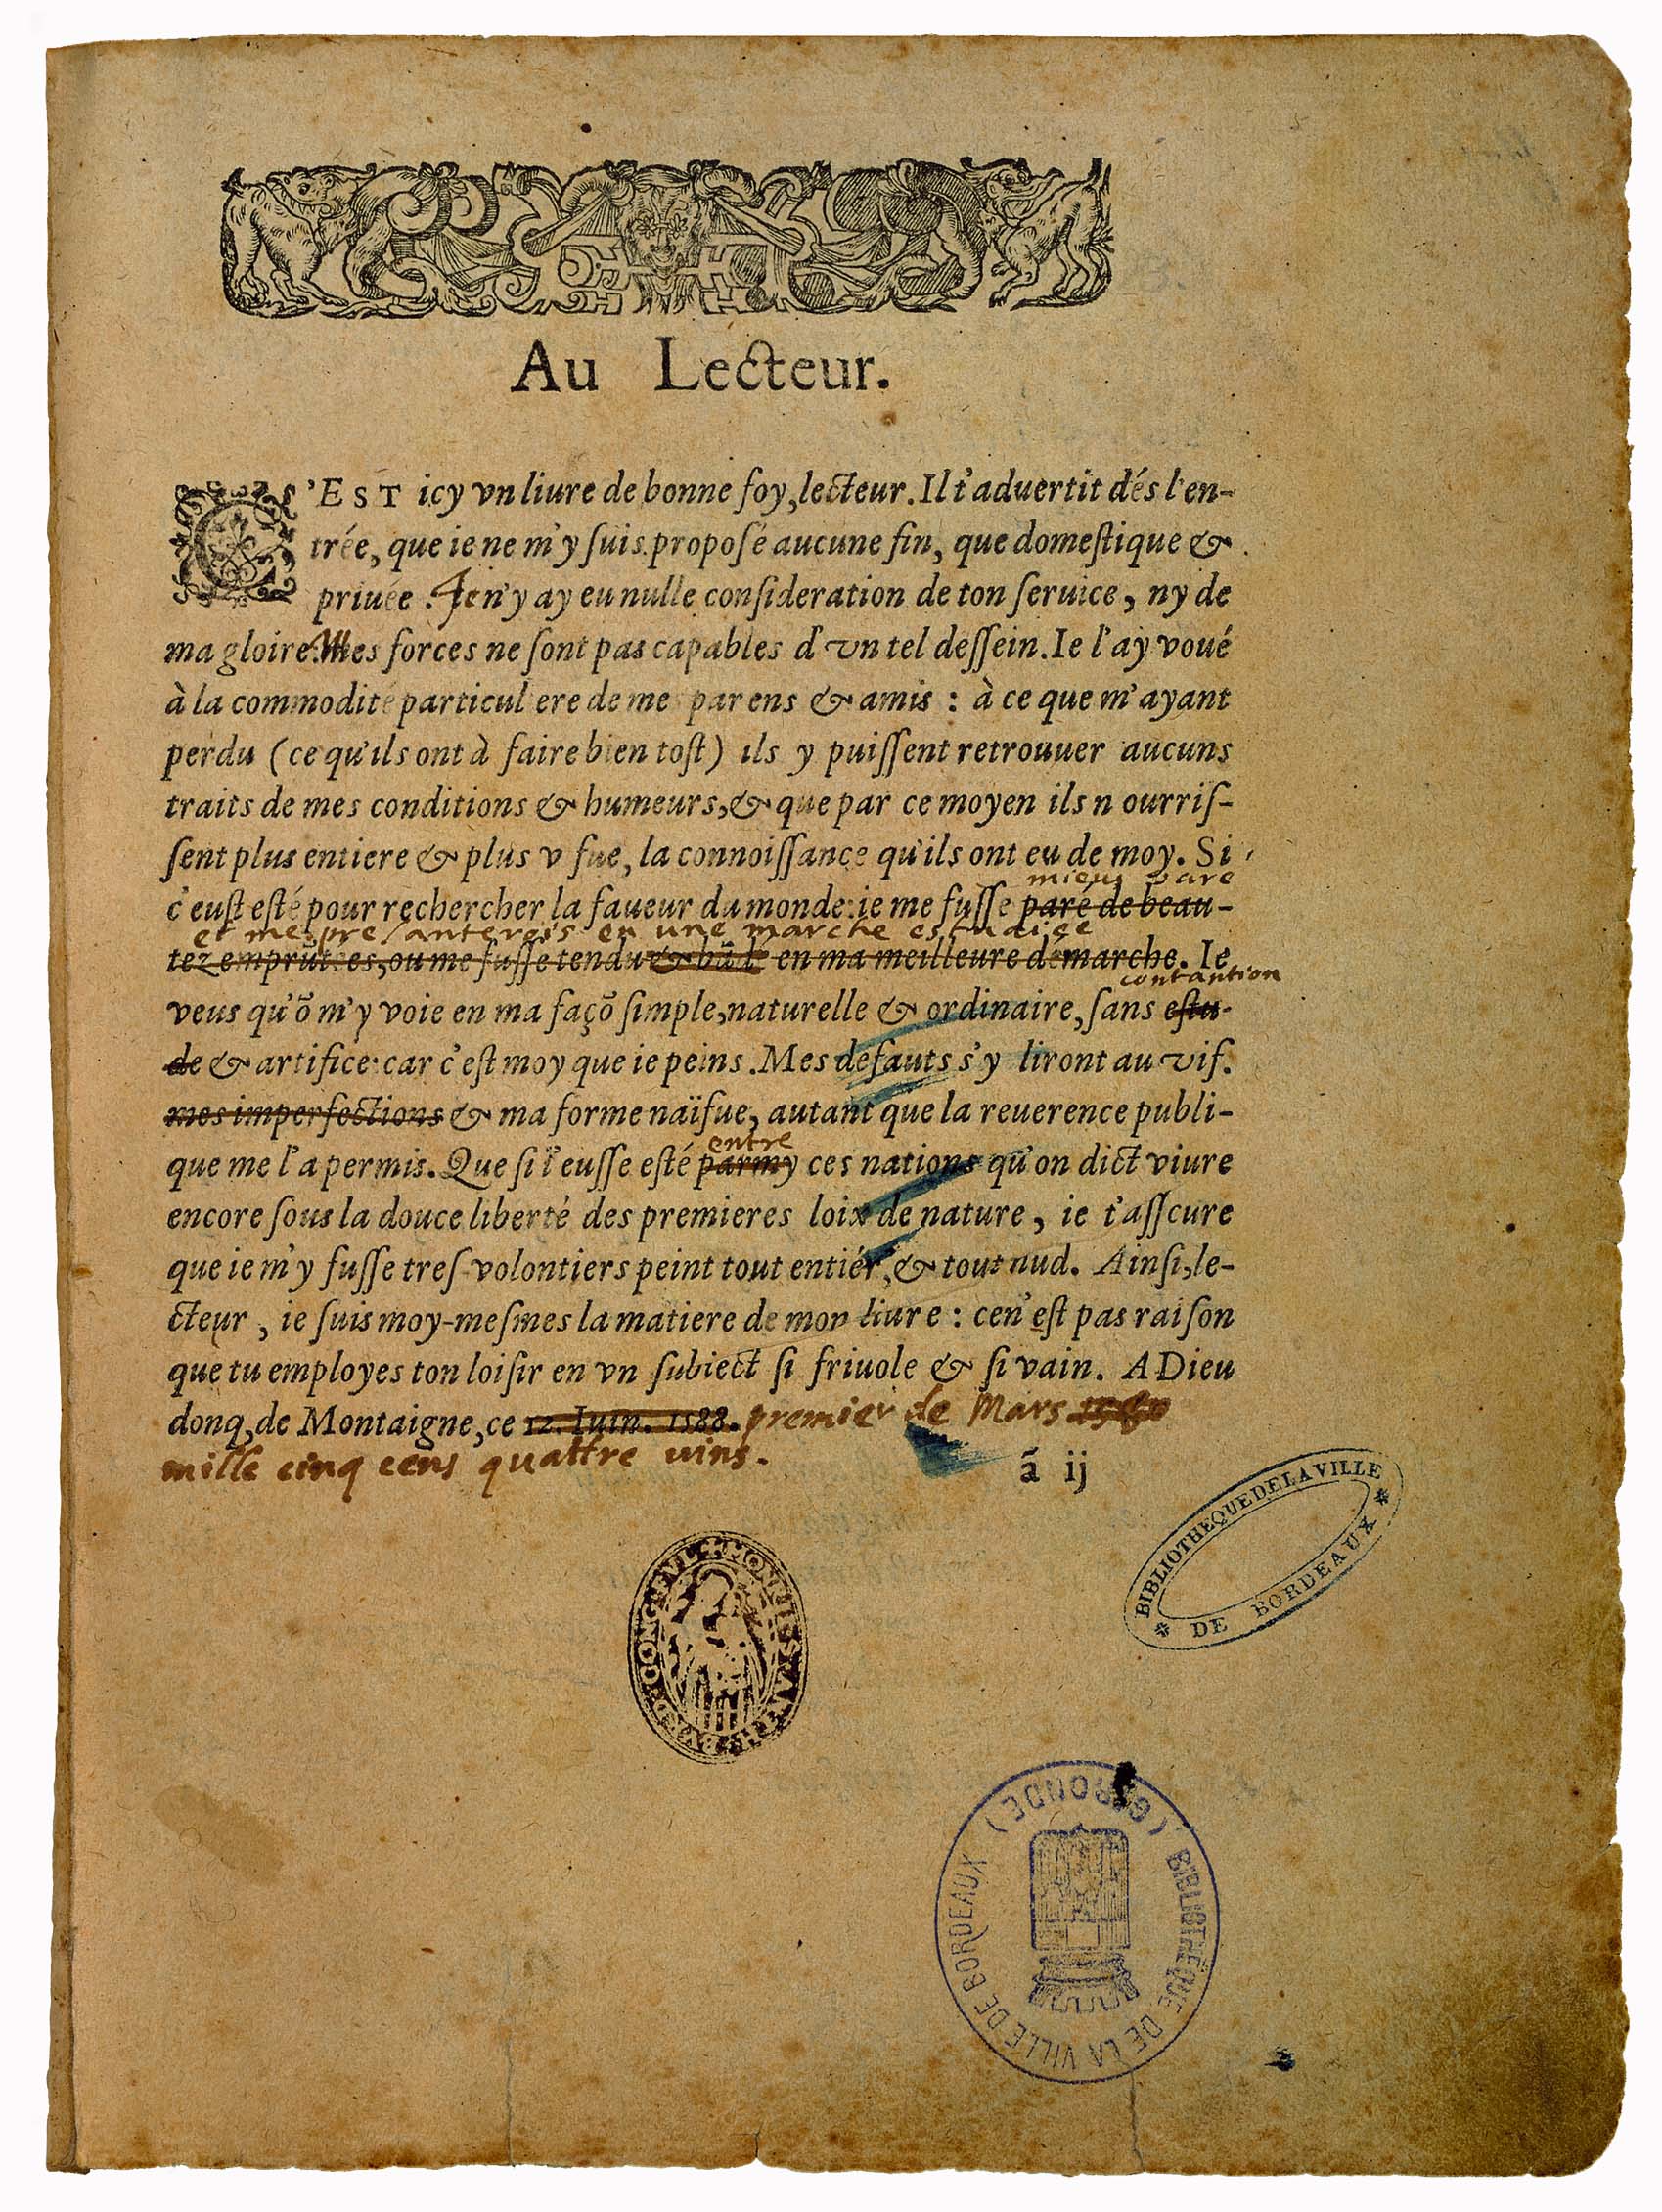 Au Lecteur.
C'EST icy vn liure de bonne foy, lecteur. Il t'aduertit dés l'en-
trée, que ie ne m'y suis proposé aucune fin, que domestique &
priuée. Je n'y ay eu nulle consideration de ton seruice, ny de
ma gloire. Mes forces ne sont pas capables d'vn tel dessein. Ie l'ay voué
à la commodité particul ere de me parens & amis : à ce que m'ayant
perdu (ce qu'ils ont à faire bien tost) ils y puissent retrouuer aucuns
traits de mes conditions & humeurs, & que par ce moyen ils nourris-
sent plus entiere & plus vfue, la connoissance qu'ils ont eu de moy. Si
mieus paré
c'eust esté pour rechercher la faueur du monde: ie me fusse paré de beau-
et me presanterois en une marche estudiee
tez emprũtees, ou me fusse tendu & bãdé en ma meilleure démarche. Ie
contantion
veus qu'õ m'y voie en ma façõ simple, naturelle & ordinaire, sans estu-
de & artifice: car c'est moy que ie peins. Mes defauts s'y liront au vif.
mes imperfections & ma forme naïfue, autant que la reuerence publi-
entre
que me l'a permis. Que si i'eusse esté parmy ces nations qu'on dict viure
encore sous la douce liberté des premieres loix de nature, ie t'asseure
que ie m'y fusse tres-volontiers peint tout entiér, & tout nud. Ainsi, le-
cteur, ie suis moy-mesmes la matiere de mon liure : ce n'est pas raison
que tu employes ton loisir en vn subiect si friuole & si vain. A Dieu
donq, de Montaigne, ce 12. Iuin. 1588. premier de Mars 1580
mille cinq cens quattre uins.
ã ij
BIBLIOTHEQUE DE LA VILLE
DE BORDEAUX
BIBLIOTHÈQUE DE LA VILLE DE BORDEAUX (GIRONDE)